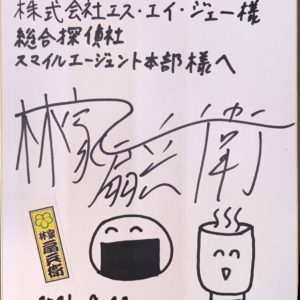 株式会社エス・エイ・ジェー様
総合探偵社
スマイルエージェント本部様へ
林家扇兵衛
林家
扇兵衛